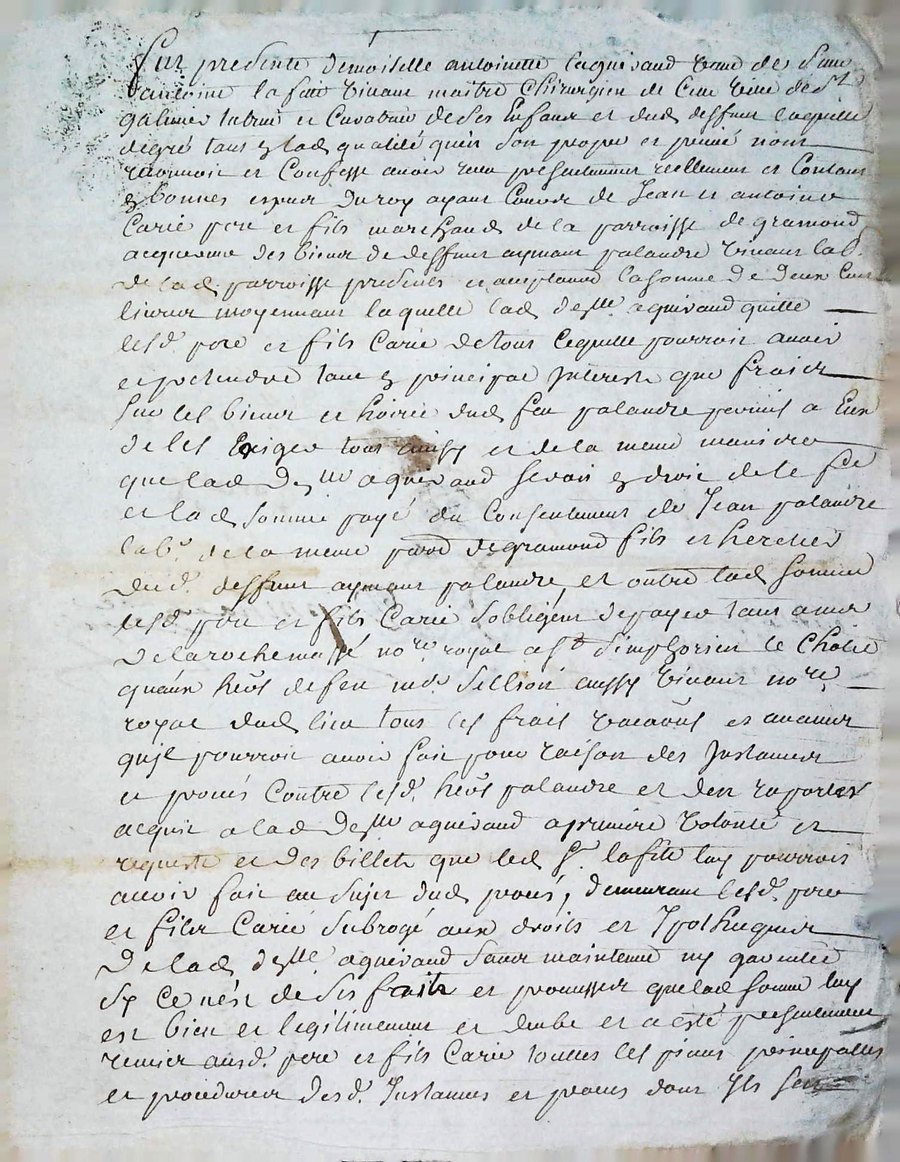 fut presente demoiselle antoinette laguiraud veuve de Sieur
antoine lafitte vivant maitre Chirurgien de Cette ville de St
galmier tutrice et Curatrice de Ses Enfans et dud deffunt laquelle
degré tant & lad qualité qu'en Son propre et privé nom
reconnoit et Confesse avoir receu presentement reellement et Contant
& bonnes especes du roy ayant Cours de Jean et antoine
Carié pere et fils marchands de la parroisse de gramond
acquereurs des biens de deffunt aymant palandre vivant lab.
de lad parroisse presents et acceptants la somme de deux Cent
livres moyennant laquelle lad delle aguiraud quitte
lesd. pere et fils Carié de tout Cequelle pourroit avoir
et pretendre tant & principal Interests que frais
Sur les biens et hoirie dud feu palandre permis a Eux
de les Exiger tout ainsy et de la meme maniere
que lad delle aguiraud seroit & droit de le fe
et lad Somme payé du Consentement de Jean palandre
lab. de la meme parr. de gramond fils et heretier
dud. deffunt aymant palandre, et outre lad Somme
lesd. pere et fils Carié Sobligent de payer tant a me
Delarochemassé nore royal a St Simphorien le Chatel
quaux hers de feu me. Sellion aussy vivant nore
royal dud lieu tous les frais vacaons et avances
quil pourroit avoir fait pour raison des Instances
et procés Contre lesd. hers palandre et den raporter
acquit a lad delle aguiraud a premiere volonté et
requeste et des billets que led Sr. lafitte luy pourroit
avoir fait au Sujet dud procés, demeurant lesd. pere
et fils Carié Subrogé aux droits et Ipotheques
De lad delle aguiraud Sans maintenue ny garentie
Sy Ce nest de Ses faits et promesses que lad Somme luy
est bien et legitimement et deube et a esté presentement
remise ausd. pere et fils Carié touttes les pieces principalles
et procedures desd. Instances et procés dont Ils